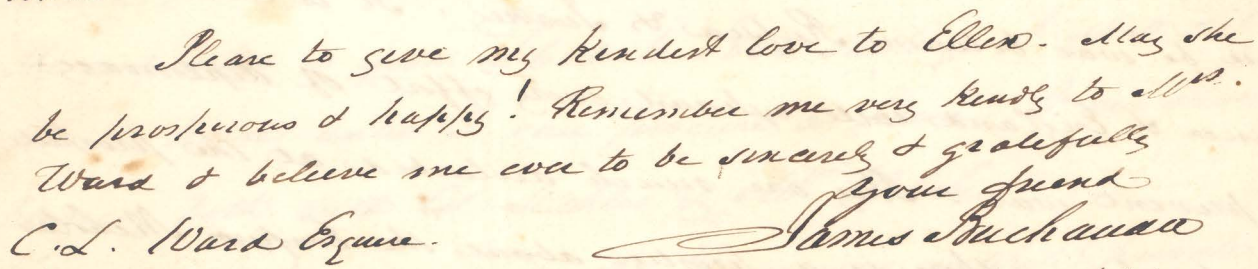 Please to give my kindest love to Ellen. May she
be prosperous & happy! Remember me very kindly to Mrs.
Ward & believe me ever to be sincerely & gratefully
Your friend
C. L. Ward Esquire. James Buchanan